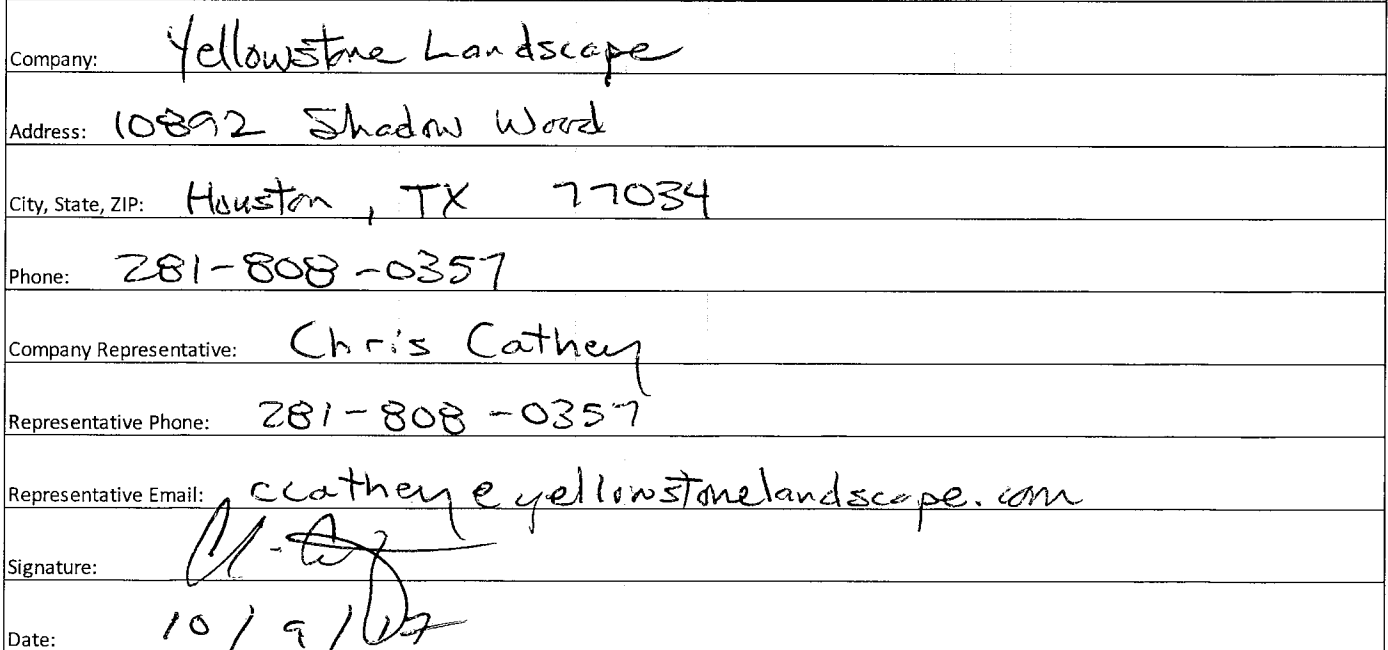 Company: Yellowstone Landscape
Address: 10892 Shadow Wood
City, State, ZIP: Houston, TX 77034
Phone: 281-808-0357
Company Representative: Chris Cathey
Representative Phone: 281-808-0357
Representative Email: ccathey@yellowstonelandscape.com
Signature:
Date: 10/9/17